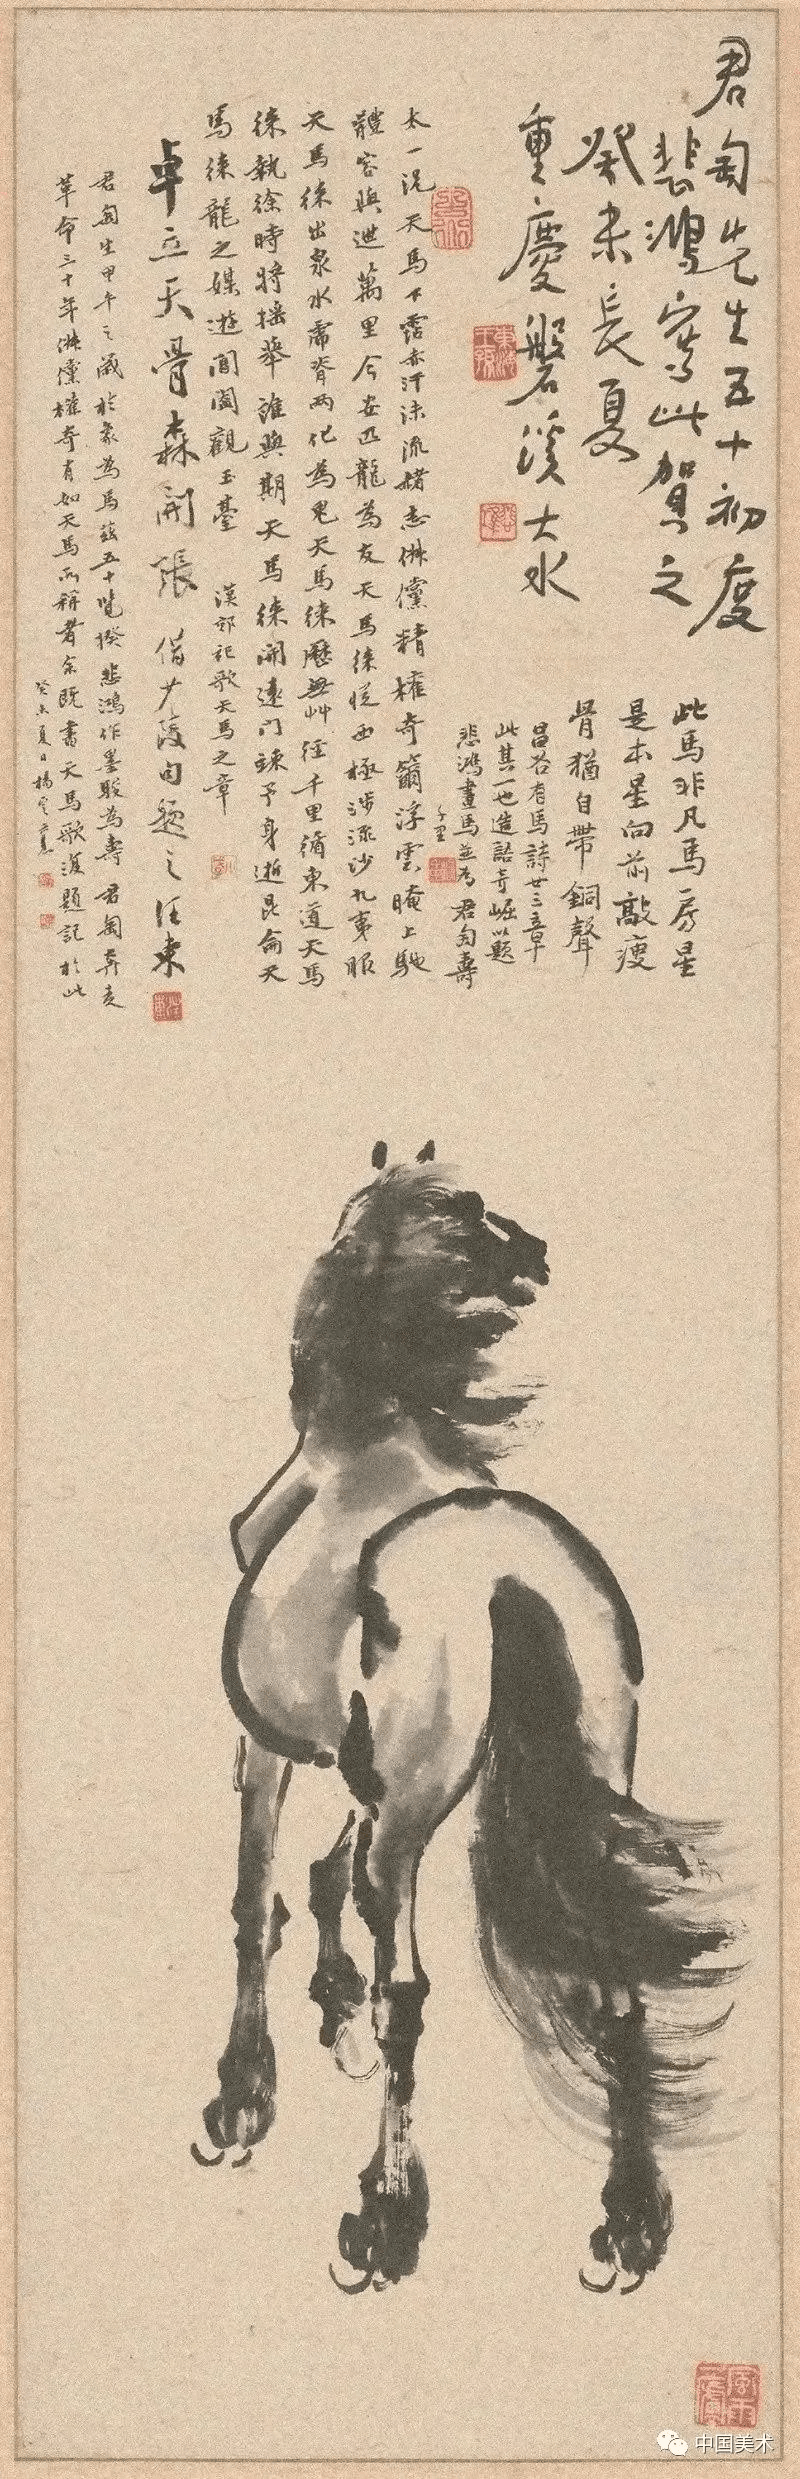 君匋先生五十初度
悲鴻寫此賀之
癸未長夏
重慶磐溪大水
此馬非凡馬房星
是本星向前敲瘦
骨猶自帶銅聲
昌谷有馬詩廿三章
此其一也造語奇崛以題
悲鴻畫馬並為君匋壽
千里
太一況天馬下霑赤汗沫流赭志俶儻精權奇籋浮雲晻上馳
體容與迣萬里今安匹龍為友天馬徠從西極涉流沙九夷服
天馬徠出泉水虎脊兩化為鬼天馬徠歷無艸徑千里循東道天馬
徠執徐時將搖舉誰與期天馬徠開遠門竦予身逝昆侖天
馬徠龍之媒遊閶闔觀玉臺 漢郊祀歌天馬之章
卓立天骨森開張 借少陵句題之汪東
君匋生甲午之歲於象為馬茲五十覽揆悲鴻作墨駿為壽君匋奔走
革命三十年俶儻權奇有如天馬所稱者余既書天馬歌復題記於此
癸未夏日楊
中国美术